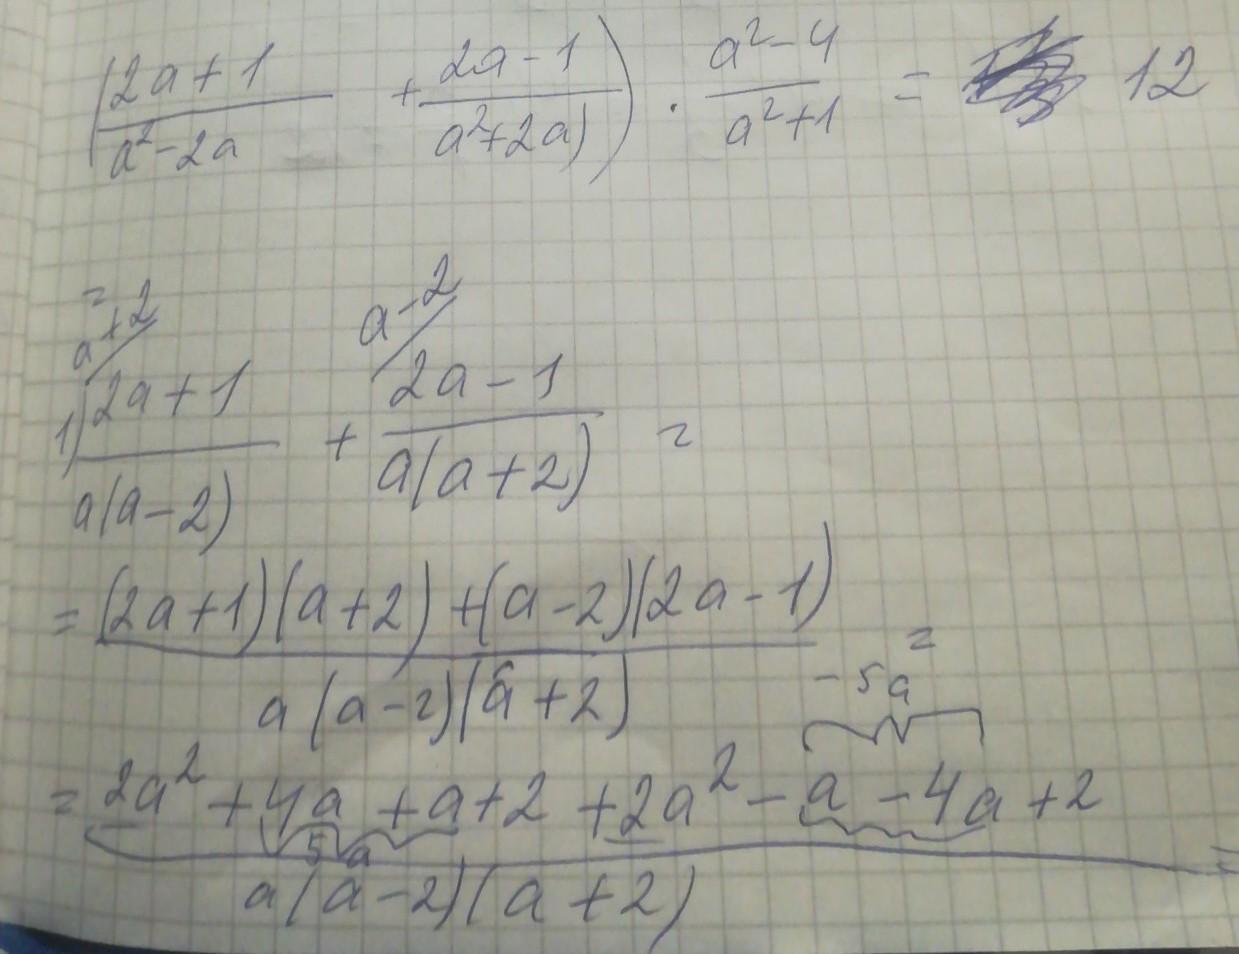 (2a+1)/(a²-2a) + (2a-1)/(a²+2a)) · (a²-4)/(a²+1) = 12
=
a+2 a-2
1) (2a+1)/(a(a-2)) + (2a-1)/(a(a+2)) =
= ((2a+1)(a+2)+(a-2)(2a-1))/(a(a-2)(a+2)) =
-5a
= (2a²+4a+a+2+2a²-a-4a+2)/(a(a-2)(a+2)) =
5a